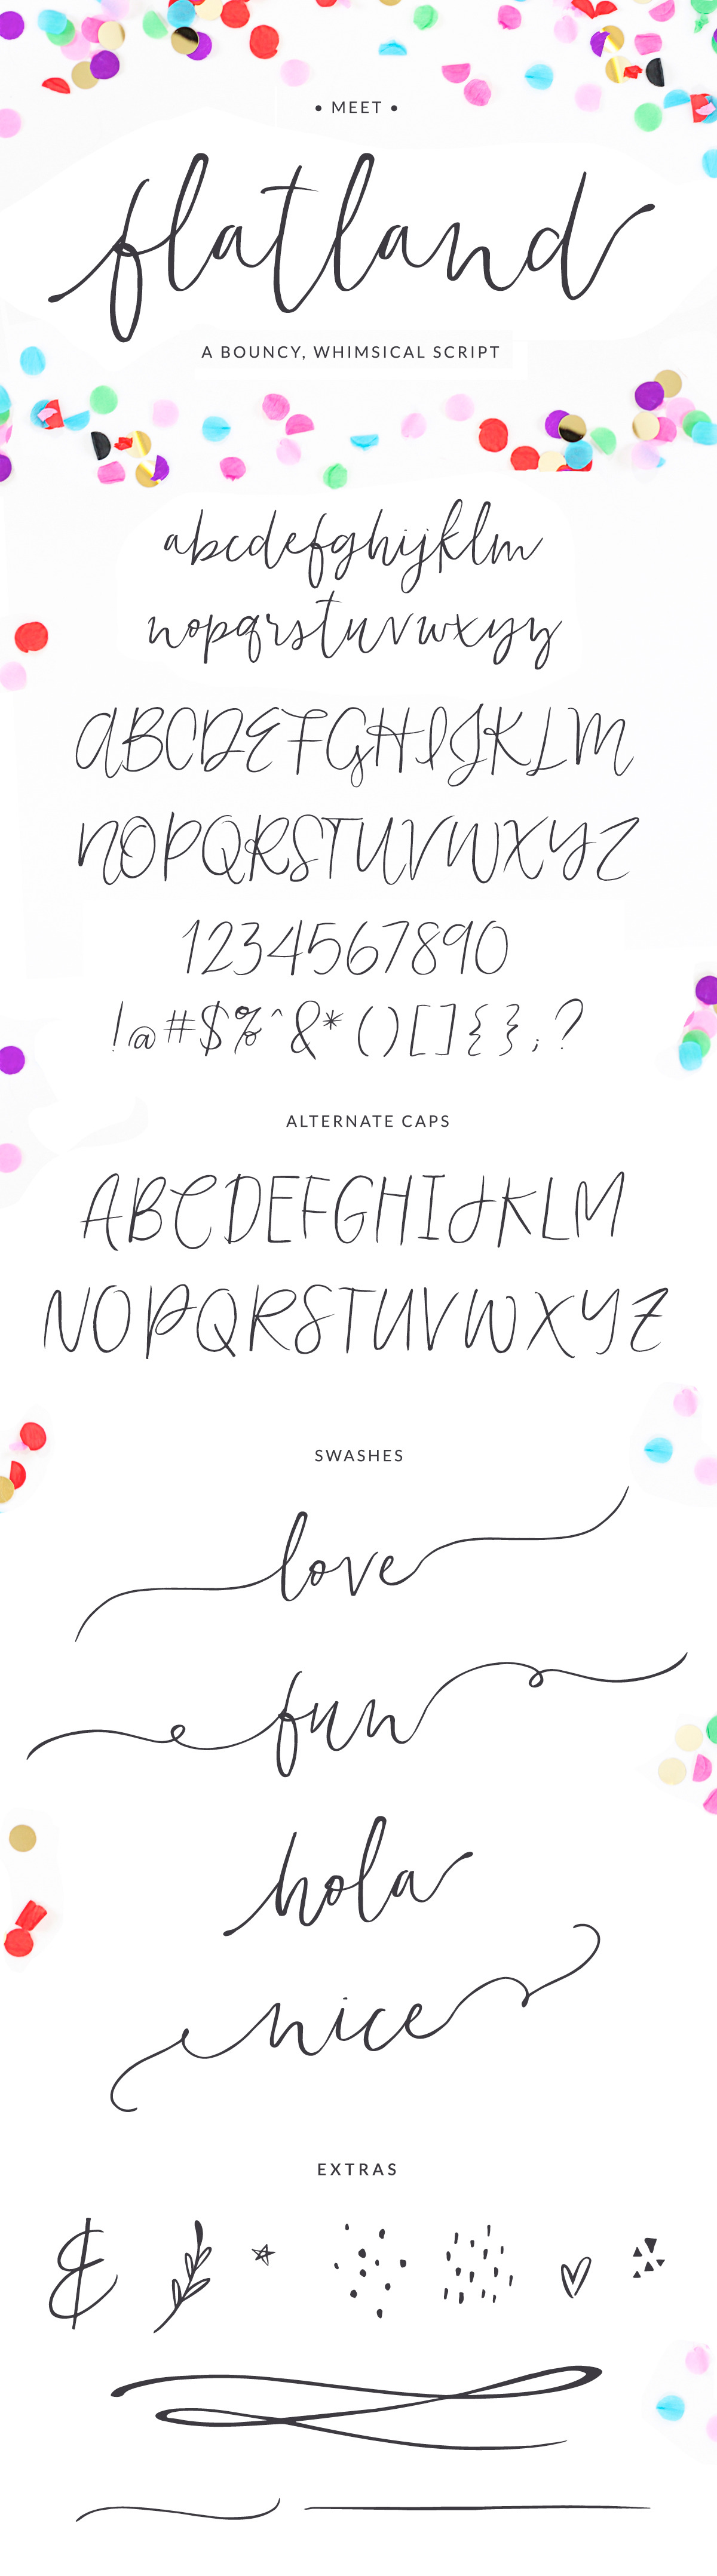 • MEET •
flatland
A BOUNCY, WHIMSICAL SCRIPT
abcdefghijklm
nopqrstuvwxyy
ABCDEFGHIJKLM
NOPQRSTUVWXYZ
1234567890
!@#$%^&*()[]{};?
ALTERNATE CAPS
ABCDEFGHIJKLM
NOPQRSTUVWXYZ
SWASHES
love
fun
hola
nice
EXTRAS
&